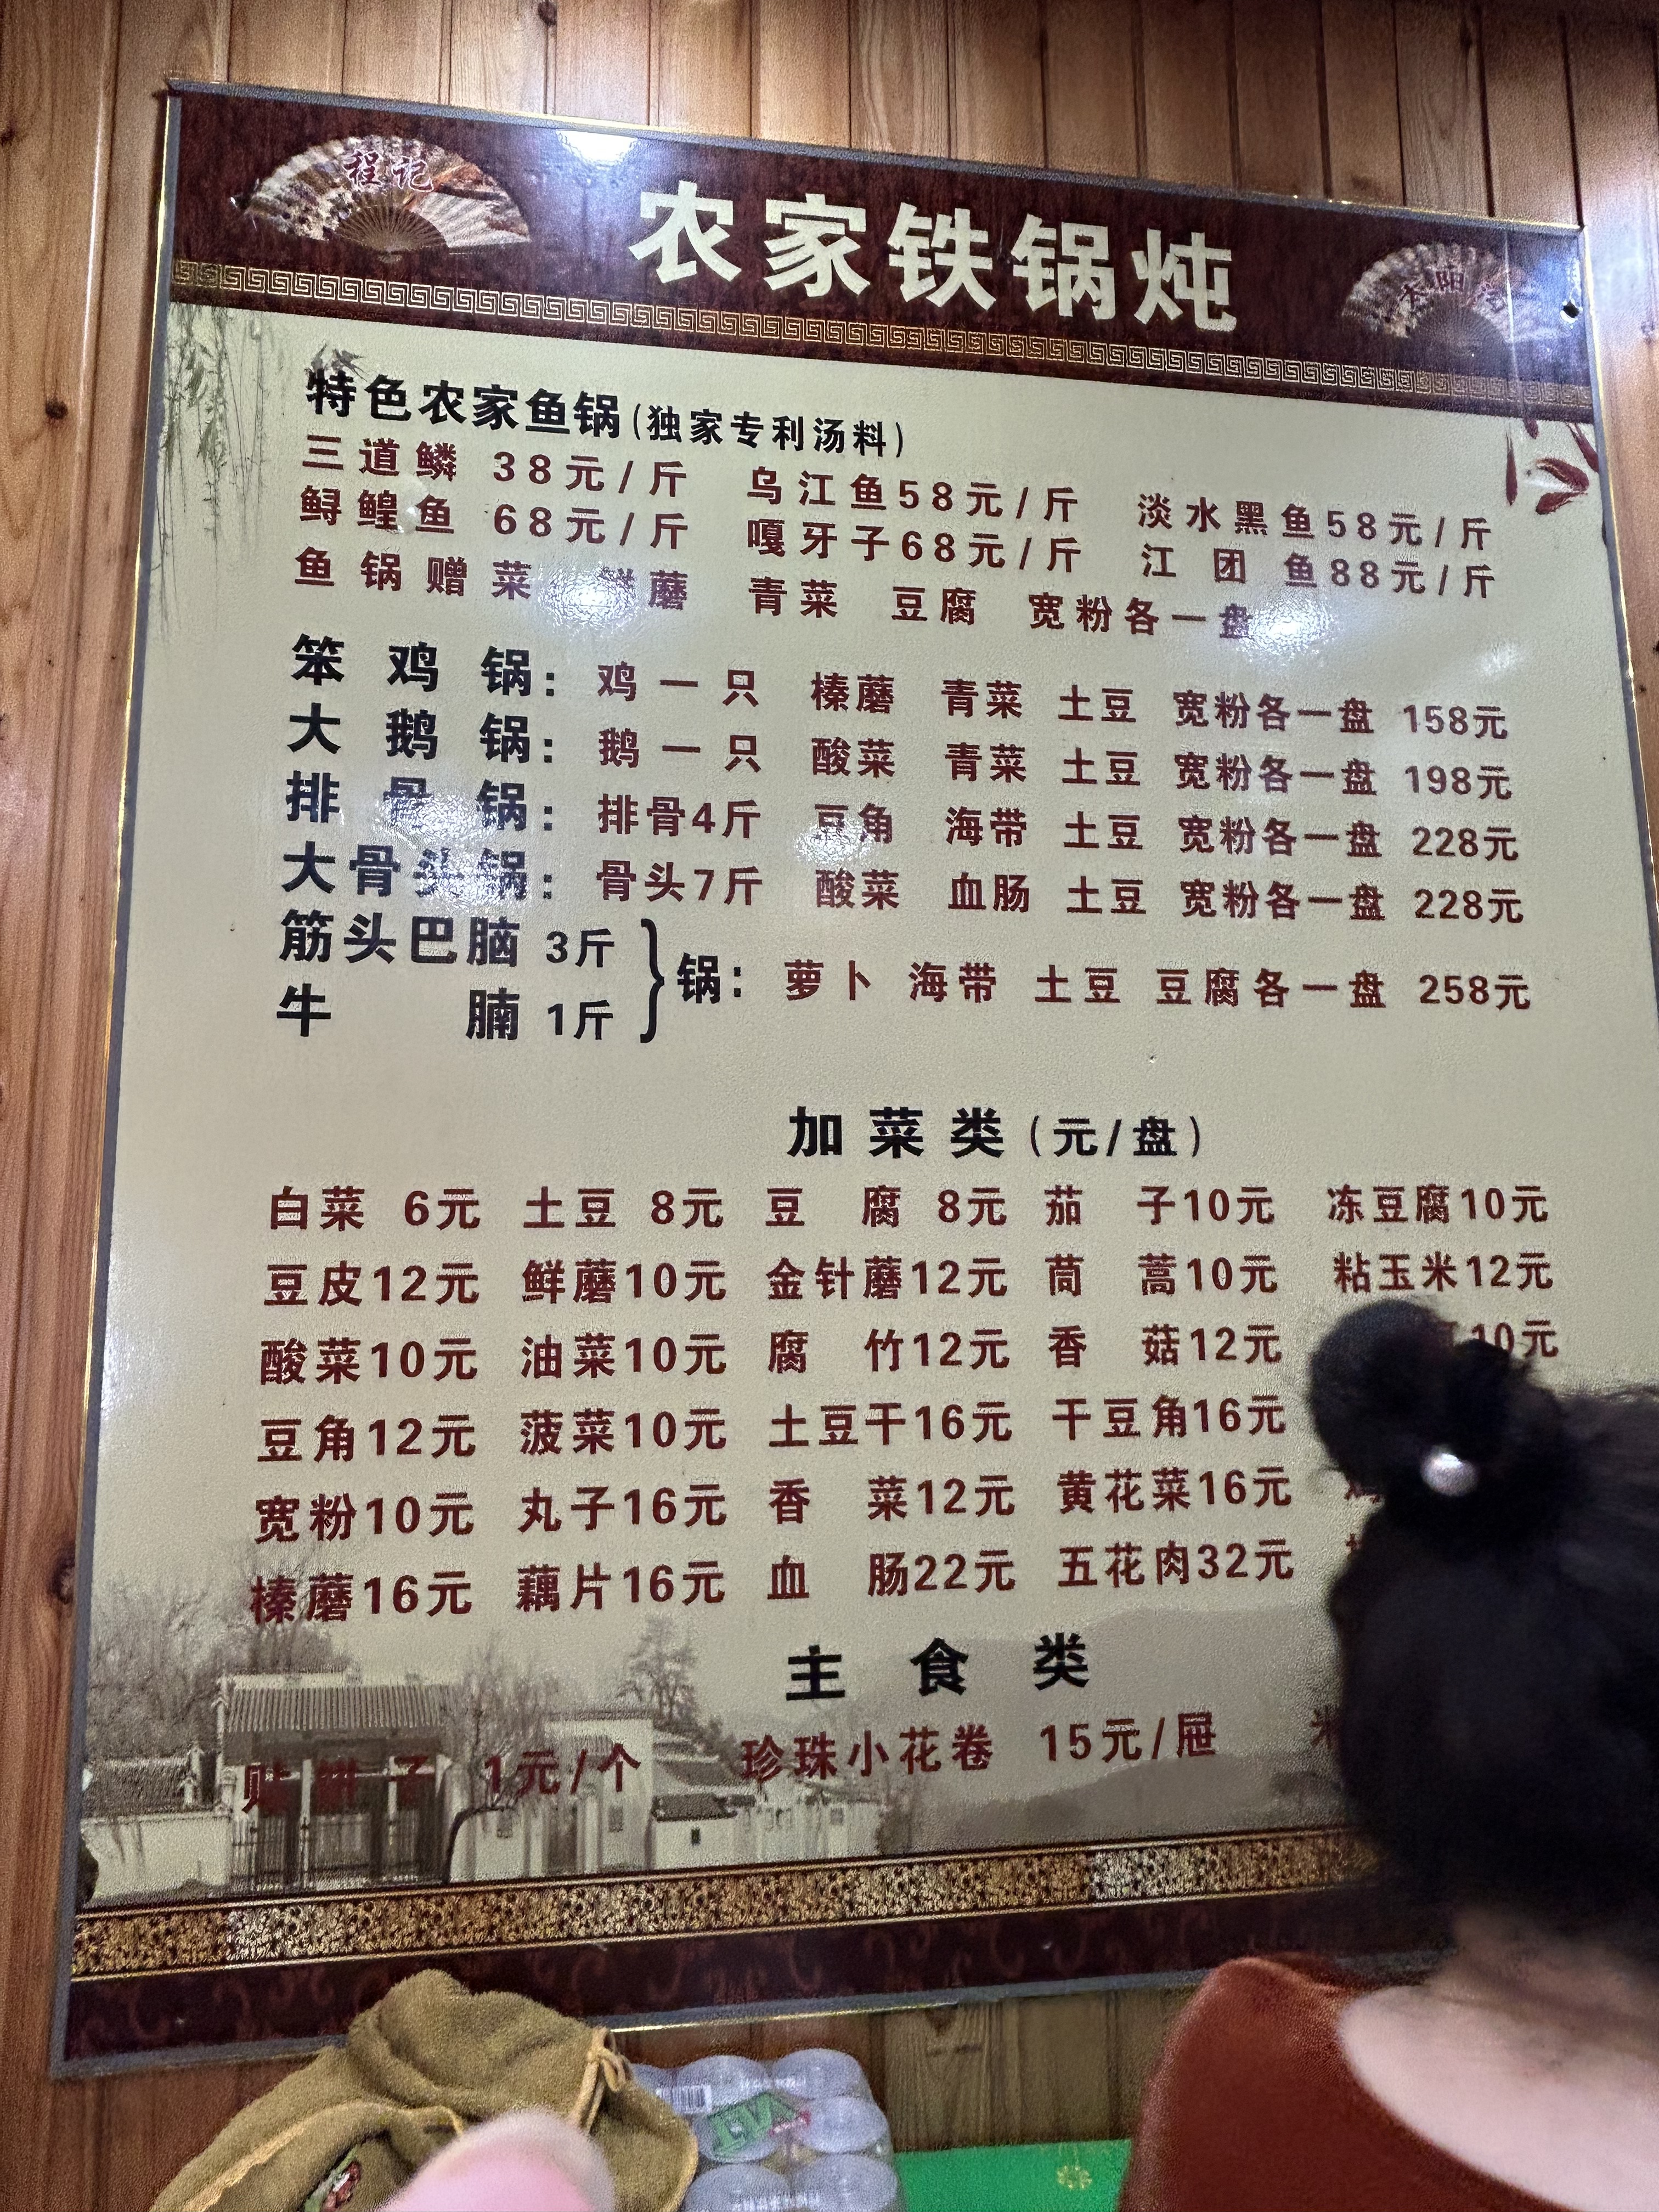 程记
农家铁锅炖
太阳
特色农家鱼锅(独家专利汤料)
三道鳞 38元/斤 乌江鱼58元/斤 淡水黑鱼58元/斤
鲟鳇鱼 68元/斤 嘎牙子68元/斤 江团鱼88元/斤
鱼锅赠菜 鲜蘑 青菜 豆腐 宽粉各一盘
笨鸡锅: 鸡一只 榛蘑 青菜 土豆 宽粉各一盘 158元
大鹅锅: 鹅一只 酸菜 青菜 土豆 宽粉各一盘 198元
排骨锅: 排骨4斤 豆角 海带 土豆 宽粉各一盘 228元
大骨头锅: 骨头7斤 酸菜 血肠 土豆 宽粉各一盘 228元
筋头巴脑 3斤
牛腩 1斤
}锅: 萝卜 海带 土豆 豆腐各一盘 258元
加菜类(元/盘)
白菜 6元 土豆 8元 豆腐 8元 茄子10元 冻豆腐10元
豆皮12元 鲜蘑10元 金针蘑12元 茼蒿10元 粘玉米12元
酸菜10元 油菜10元 腐竹12元 香菇12元 10元
豆角12元 菠菜10元 土豆干16元 干豆角16元
宽粉10元 丸子16元 香菜12元 黄花菜16元
榛蘑16元 藕片16元 血肠22元 五花肉32元
主食类
贴饼子 1元/个 珍珠小花卷 15元/屉 米